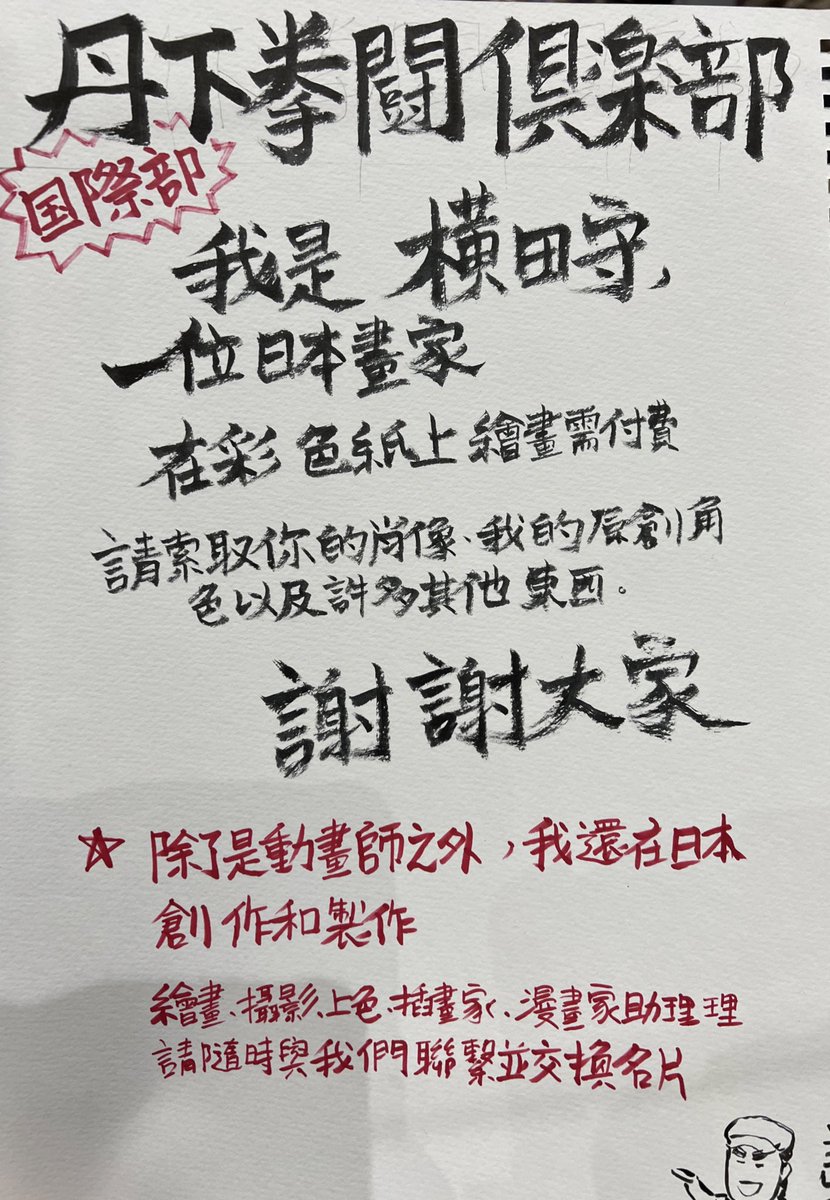 丹下拳闘倶楽部
国際部
我是 横田守,
一位日本畫家
在彩色紙上繪畫需付費
請索取你的肖像、我的原創角
色以及許多其他東西。
謝謝大家
☆ 除了是動畫師之外，我還在日本
創作和製作
繪畫、攝影、上色、插畫家、漫畫家助理理
請隨時與我們聯繫並交換名片